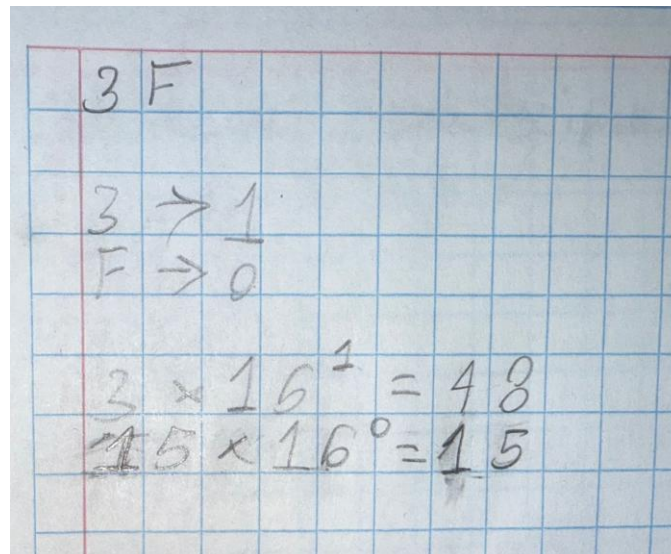 3 F
3 → 1
F → 0
3 × 16¹ = 48
15 × 16⁰ = 15